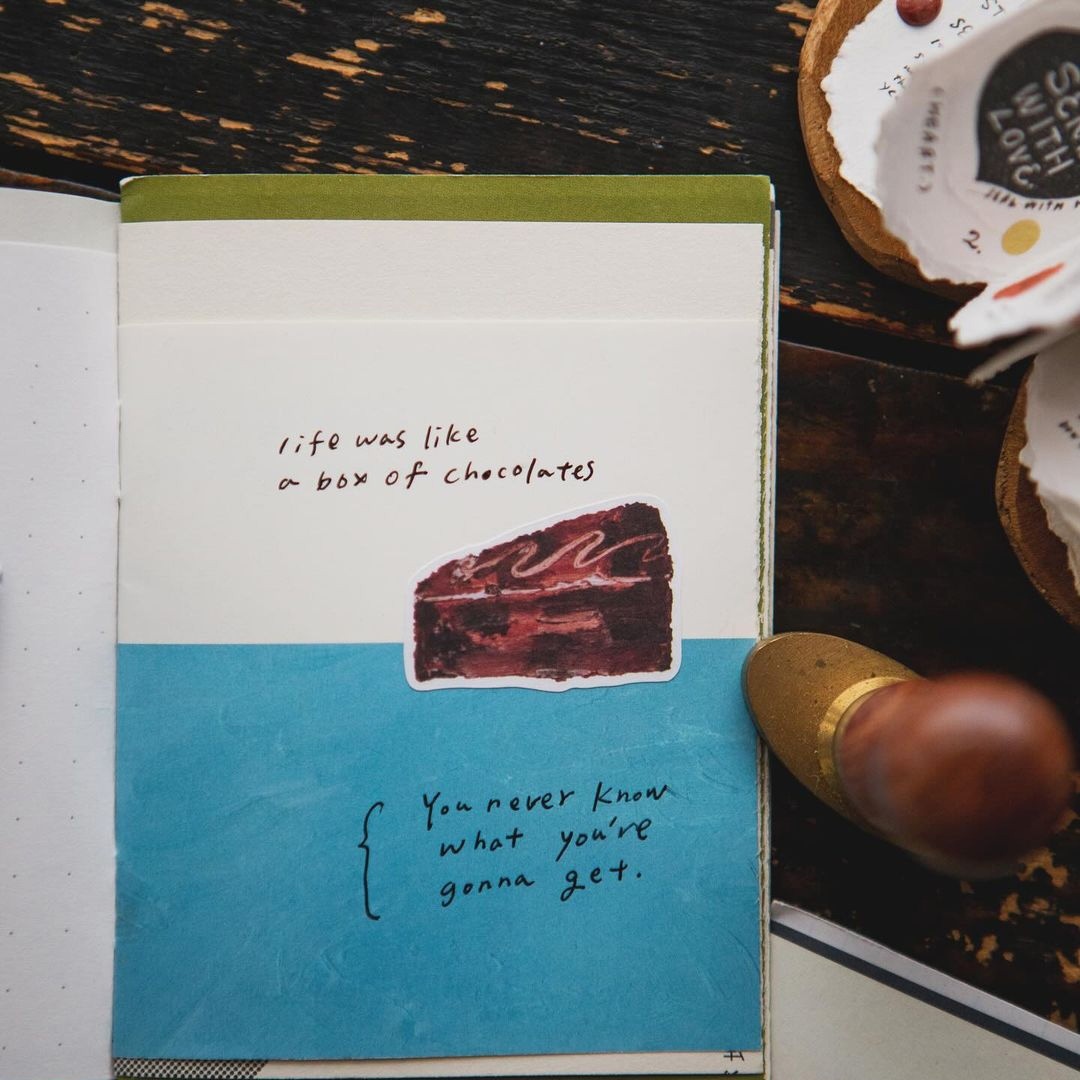 life was like
a box of chocolates
You never know
what you're
gonna get.
SEND
WITH
LOVE
2.